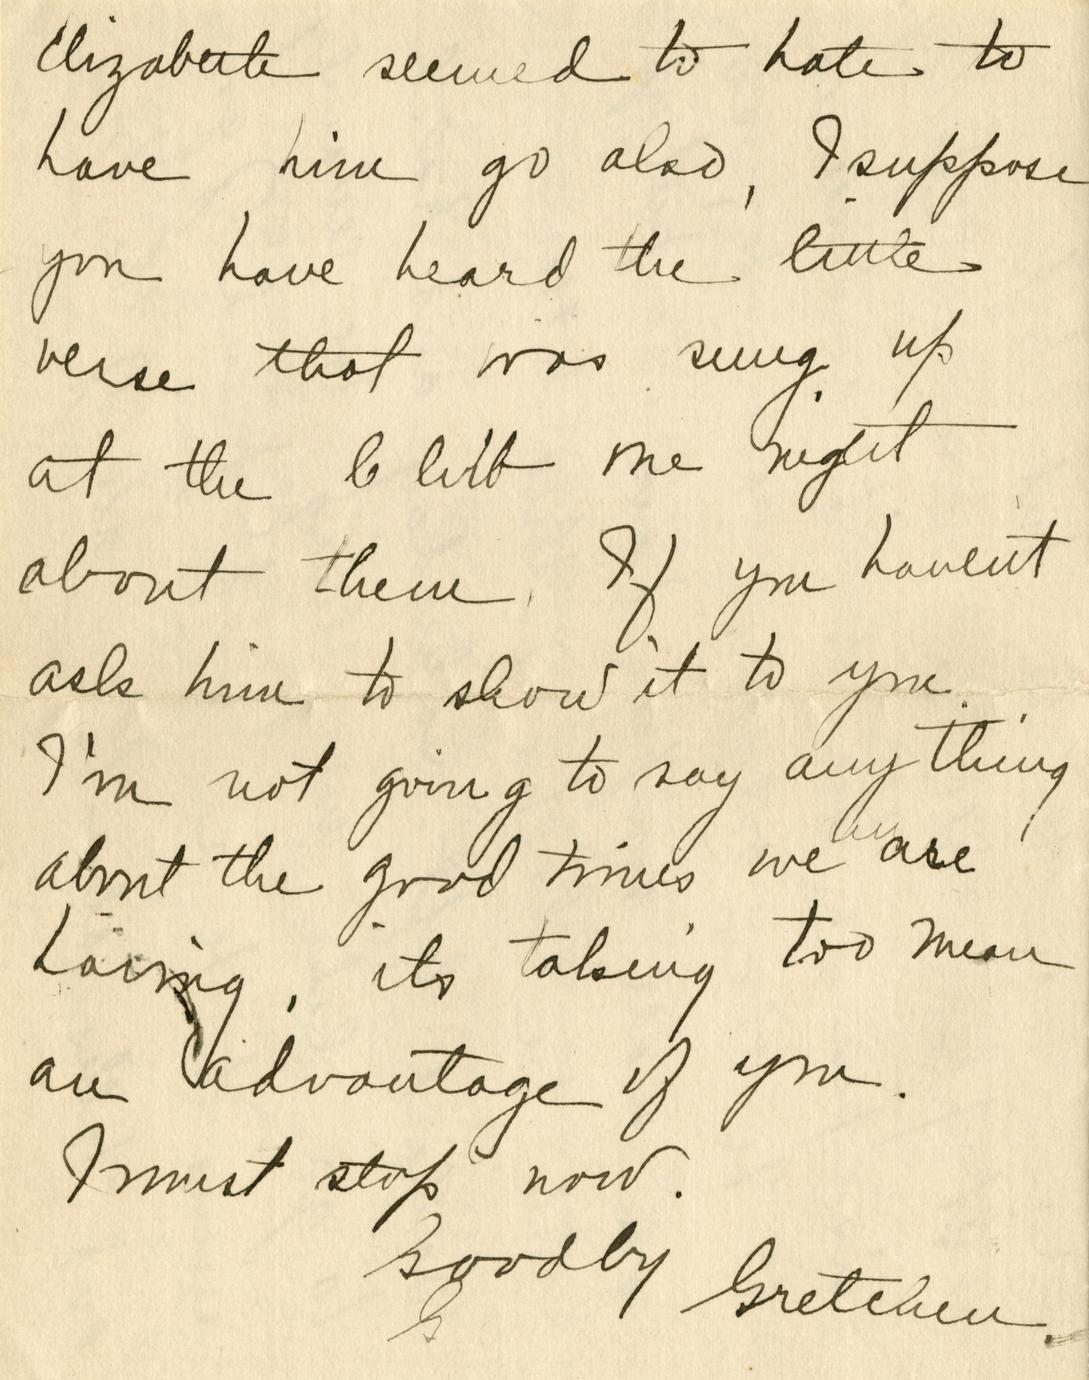 Elizabeth seemed to hate to
have him go also, I suppose
you have heard the little
verse that was sung up
at the Club one night
about them. If you havent
ask him to show it to you.
I'm not going to say anything
about the good times we are
having, its taking too mean
an advantage of you.
I must stop now.
Goodby
Gretchen.
G